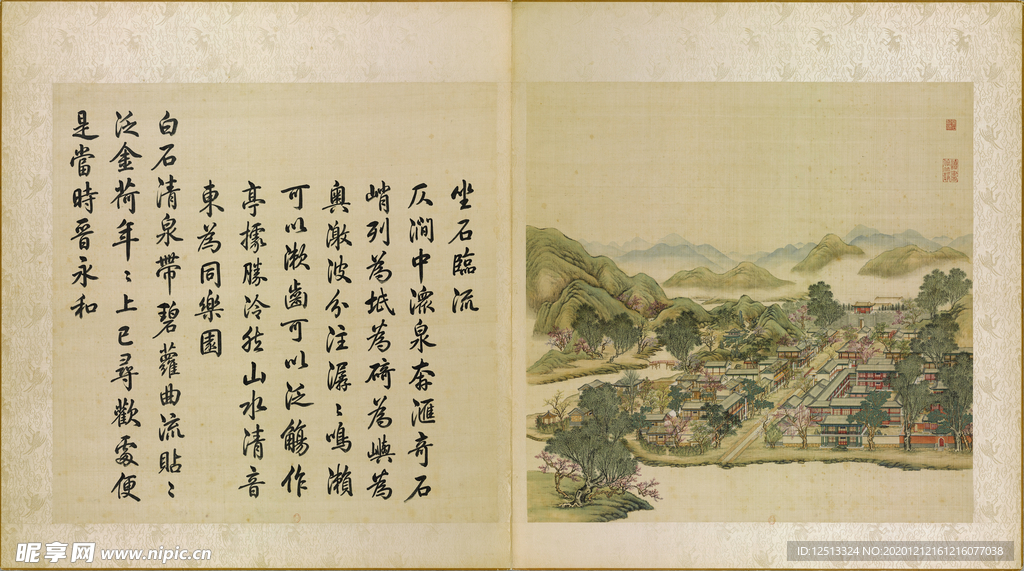 坐石臨流
仄澗中瀠泉奔滙奇石
峭列為坻為碕為嶼為
奧激波分注潺〻鳴瀨
可以漱齒可以泛觴作
亭據勝泠然山水清音
東為同樂園
白石清泉帶碧蘿曲流貼〻
泛金荷年〻上巳尋歡處便
是當時晉永和
昵享网 www.nipic.cn
ID:12513324 NO:20201212161216077038